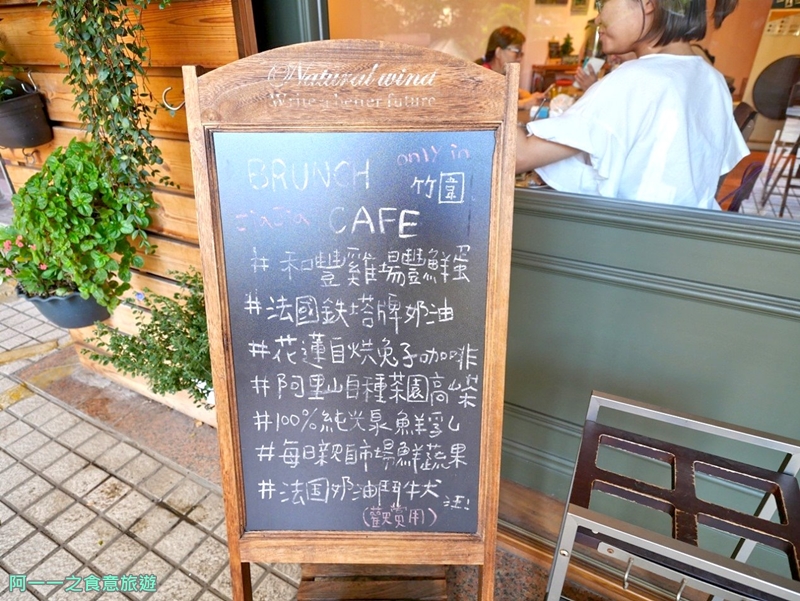 Natural wind
Write a better future
BRUNCH only in
竹圍
JiaJia CAFE
# 和豐雞場豐鮮蛋
#法國鉄塔牌奶油
#花蓮自烘兔子咖啡
#阿里山自種茶園高山茶
#100%純光泉鮮乳
#每日親自市場鮮蔬果
#法国奶油鬥牛犬 汪!
(觀賞用)
阿一一之食意旅遊